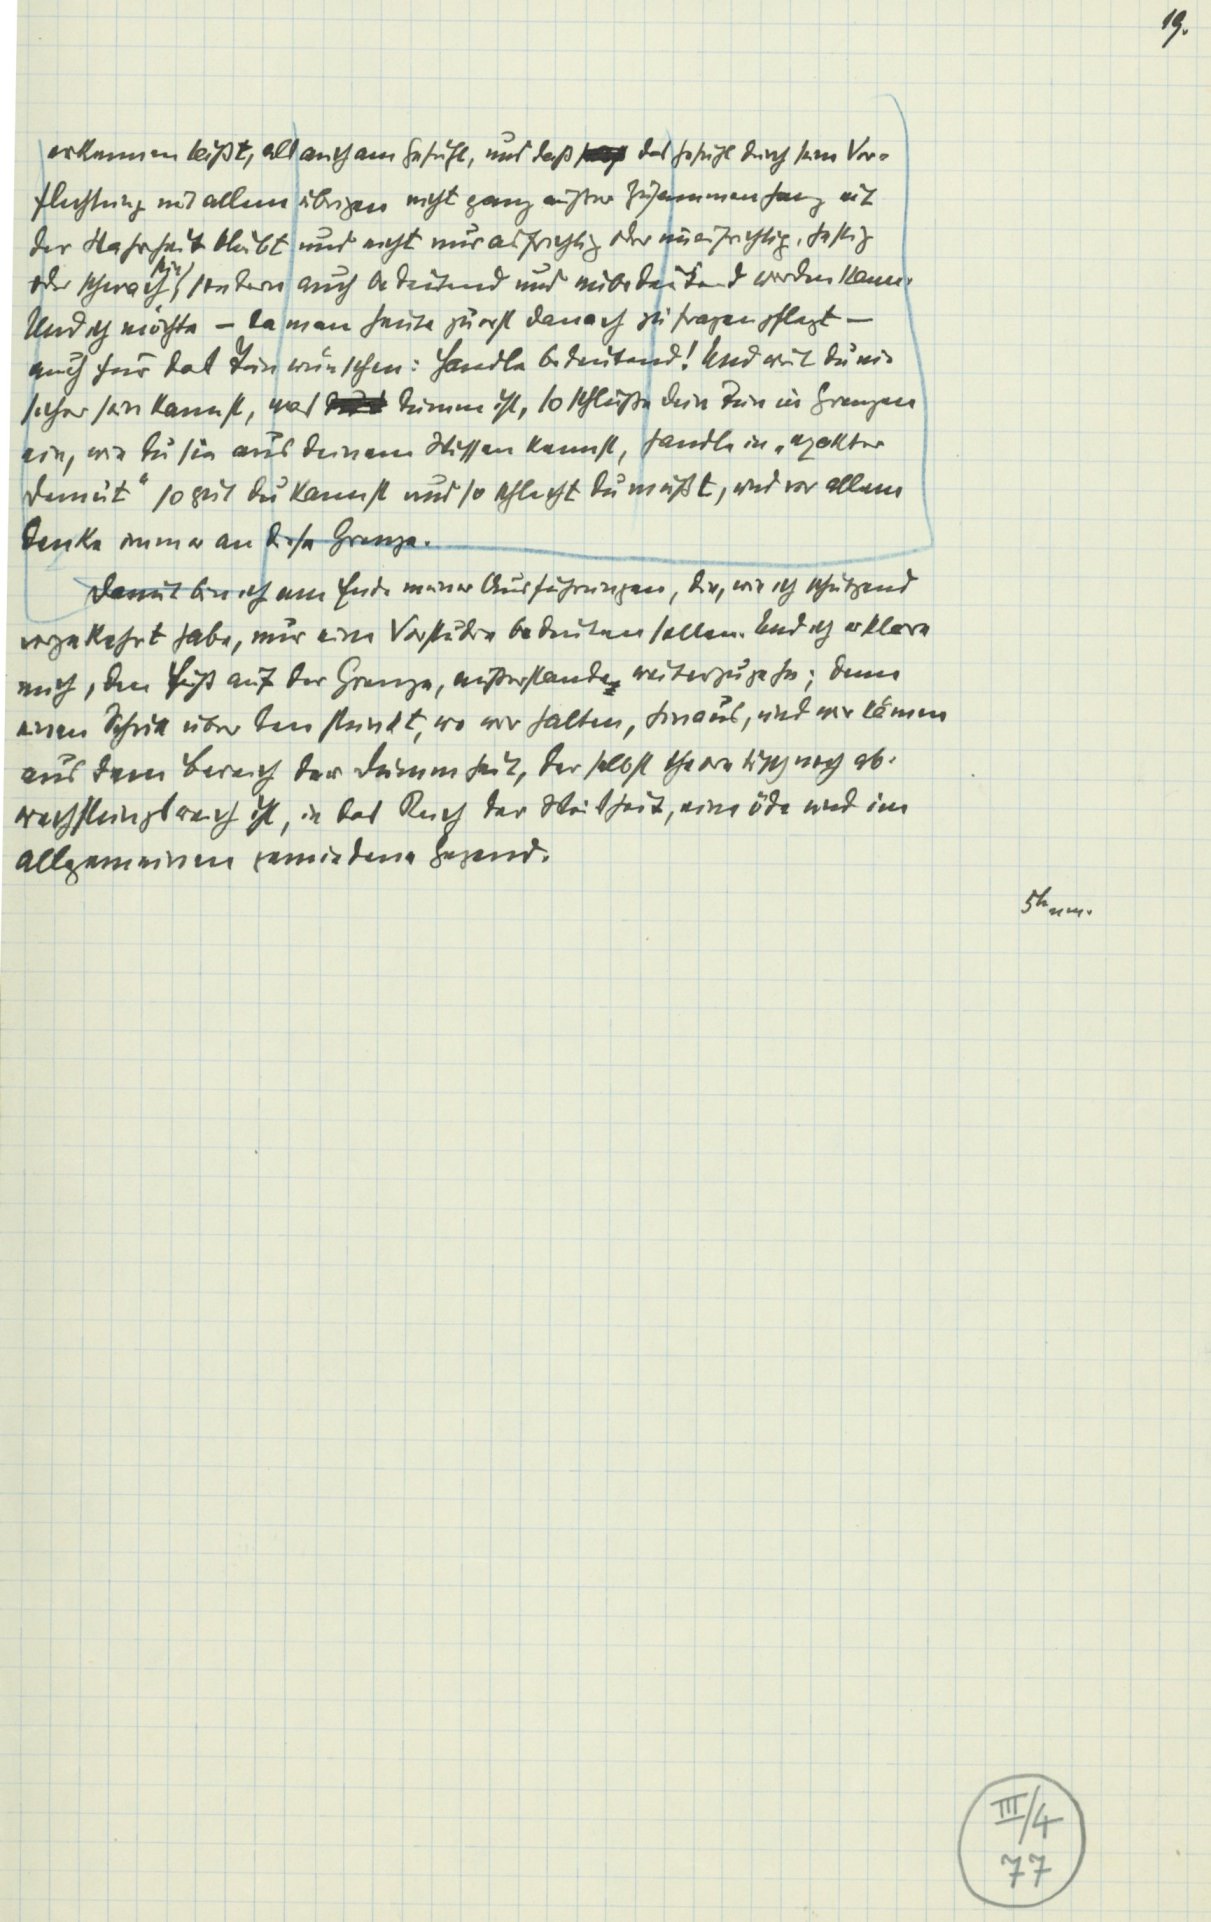 19.
erkennen läßt, als auch am Gefühl, und daß das Gefühl durch seine Ver-
flechtung mit allem übrigen nicht ganz außer Zusammenhang mit
der Wahrheit bleibt und nicht nur aufrichtig oder unaufrichtig, heftig
oder schwach sein, sondern auch bedeutend und unbedeutend werden kann.
Und ich möchte – da man heute zuerst danach zu fragen pflegt –
auch für das Tun wünschen: Handle bedeutend! Und weil du nie
sicher sein kannst, was dumm ist, so schließe dein Tun in Grenzen
ein, wie du sie aus deinem Wissen kennst, handle in „exakter
Demut“ so gut du kannst und so schlecht du mußt, und vor allem
denke immer an diese Grenze.
Damit bin ich am Ende meiner Ausführungen, die, wie ich schützend
vorgekehrt habe, nur eine Vorstudie bedeuten sollen. Und ich erkläre
mich, den Fuß auf der Grenze, außerstande weiterzugehn; denn
einen Schritt über den Punkt, wo wir halten, hinaus, und wir kämen
aus dem Bereich der Dummheit, der selbst theoretisch noch ab-
wechslungsreich ist, in das Reich der Weisheit, eine öde und im
allgemeinen gemiedene Gegend.
5h nm.
III/4
77